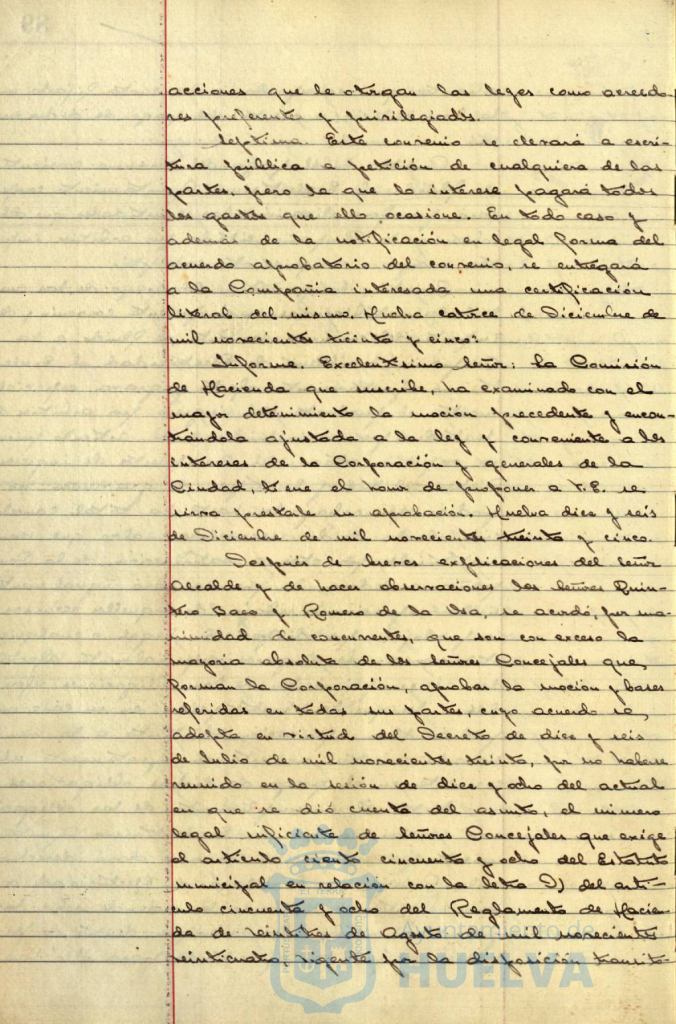 acciones que le otorgan las leyes como acreedo-
res preferente y privilegiados.
Séptima. Este convenio se elevará a escri-
tura pública a petición de cualquiera de las
partes, pero la que lo interese pagará todos
los gastos que ello ocasione. En todo caso y
además de la notificación en legal forma del
acuerdo aprobatorio del convenio, se entregará
a la Compañía interesada una certificación
literal del mismo. Huelva catorce de Diciembre de
mil novecientos treinta y cinco:
Informe. Excelentísimo Señor: La Comisión
de Hacienda que suscribe, ha examinado con el
mayor detenimiento la moción precedente y encon-
trándola ajustada a la ley y conveniente a los
intereses de la Corporación y generales de la
Ciudad, tiene el honor de proponer a V.E. se
sirva prestarle su aprobación. Huelva diez y seis
de Diciembre de mil novecientos treinta y cinco.
Después de breves explicaciones del Señor
Alcalde y de hacer observaciones los Señores Quin-
tero Baeo y Romero de la Osa, se acordó, por una-
nimidad de concurrentes, que son con exceso la
mayoría absoluta de los Señores Concejales que,
forman la Corporación, aprobar la moción y bases
referidas en todas sus partes, cuyo acuerdo se,
adopta en virtud del Decreto de diez y seis
de Julio de mil novecientos treinta, por no haberse
reunido en la sesión de diez y ocho del actual
en que se dió cuenta del asunto, el número
legal suficiente de Señores Concejales que exige
el artículo ciento cincuenta y ocho del Estatuto
municipal en relación con la letra D) del artí-
culo cincuenta y ocho del Reglamento de Hacien-
da de veintitres de Agosto de mil novecientos
veinticuatro, vigente por la disposición transito-
Ayuntamiento de
HUELVA